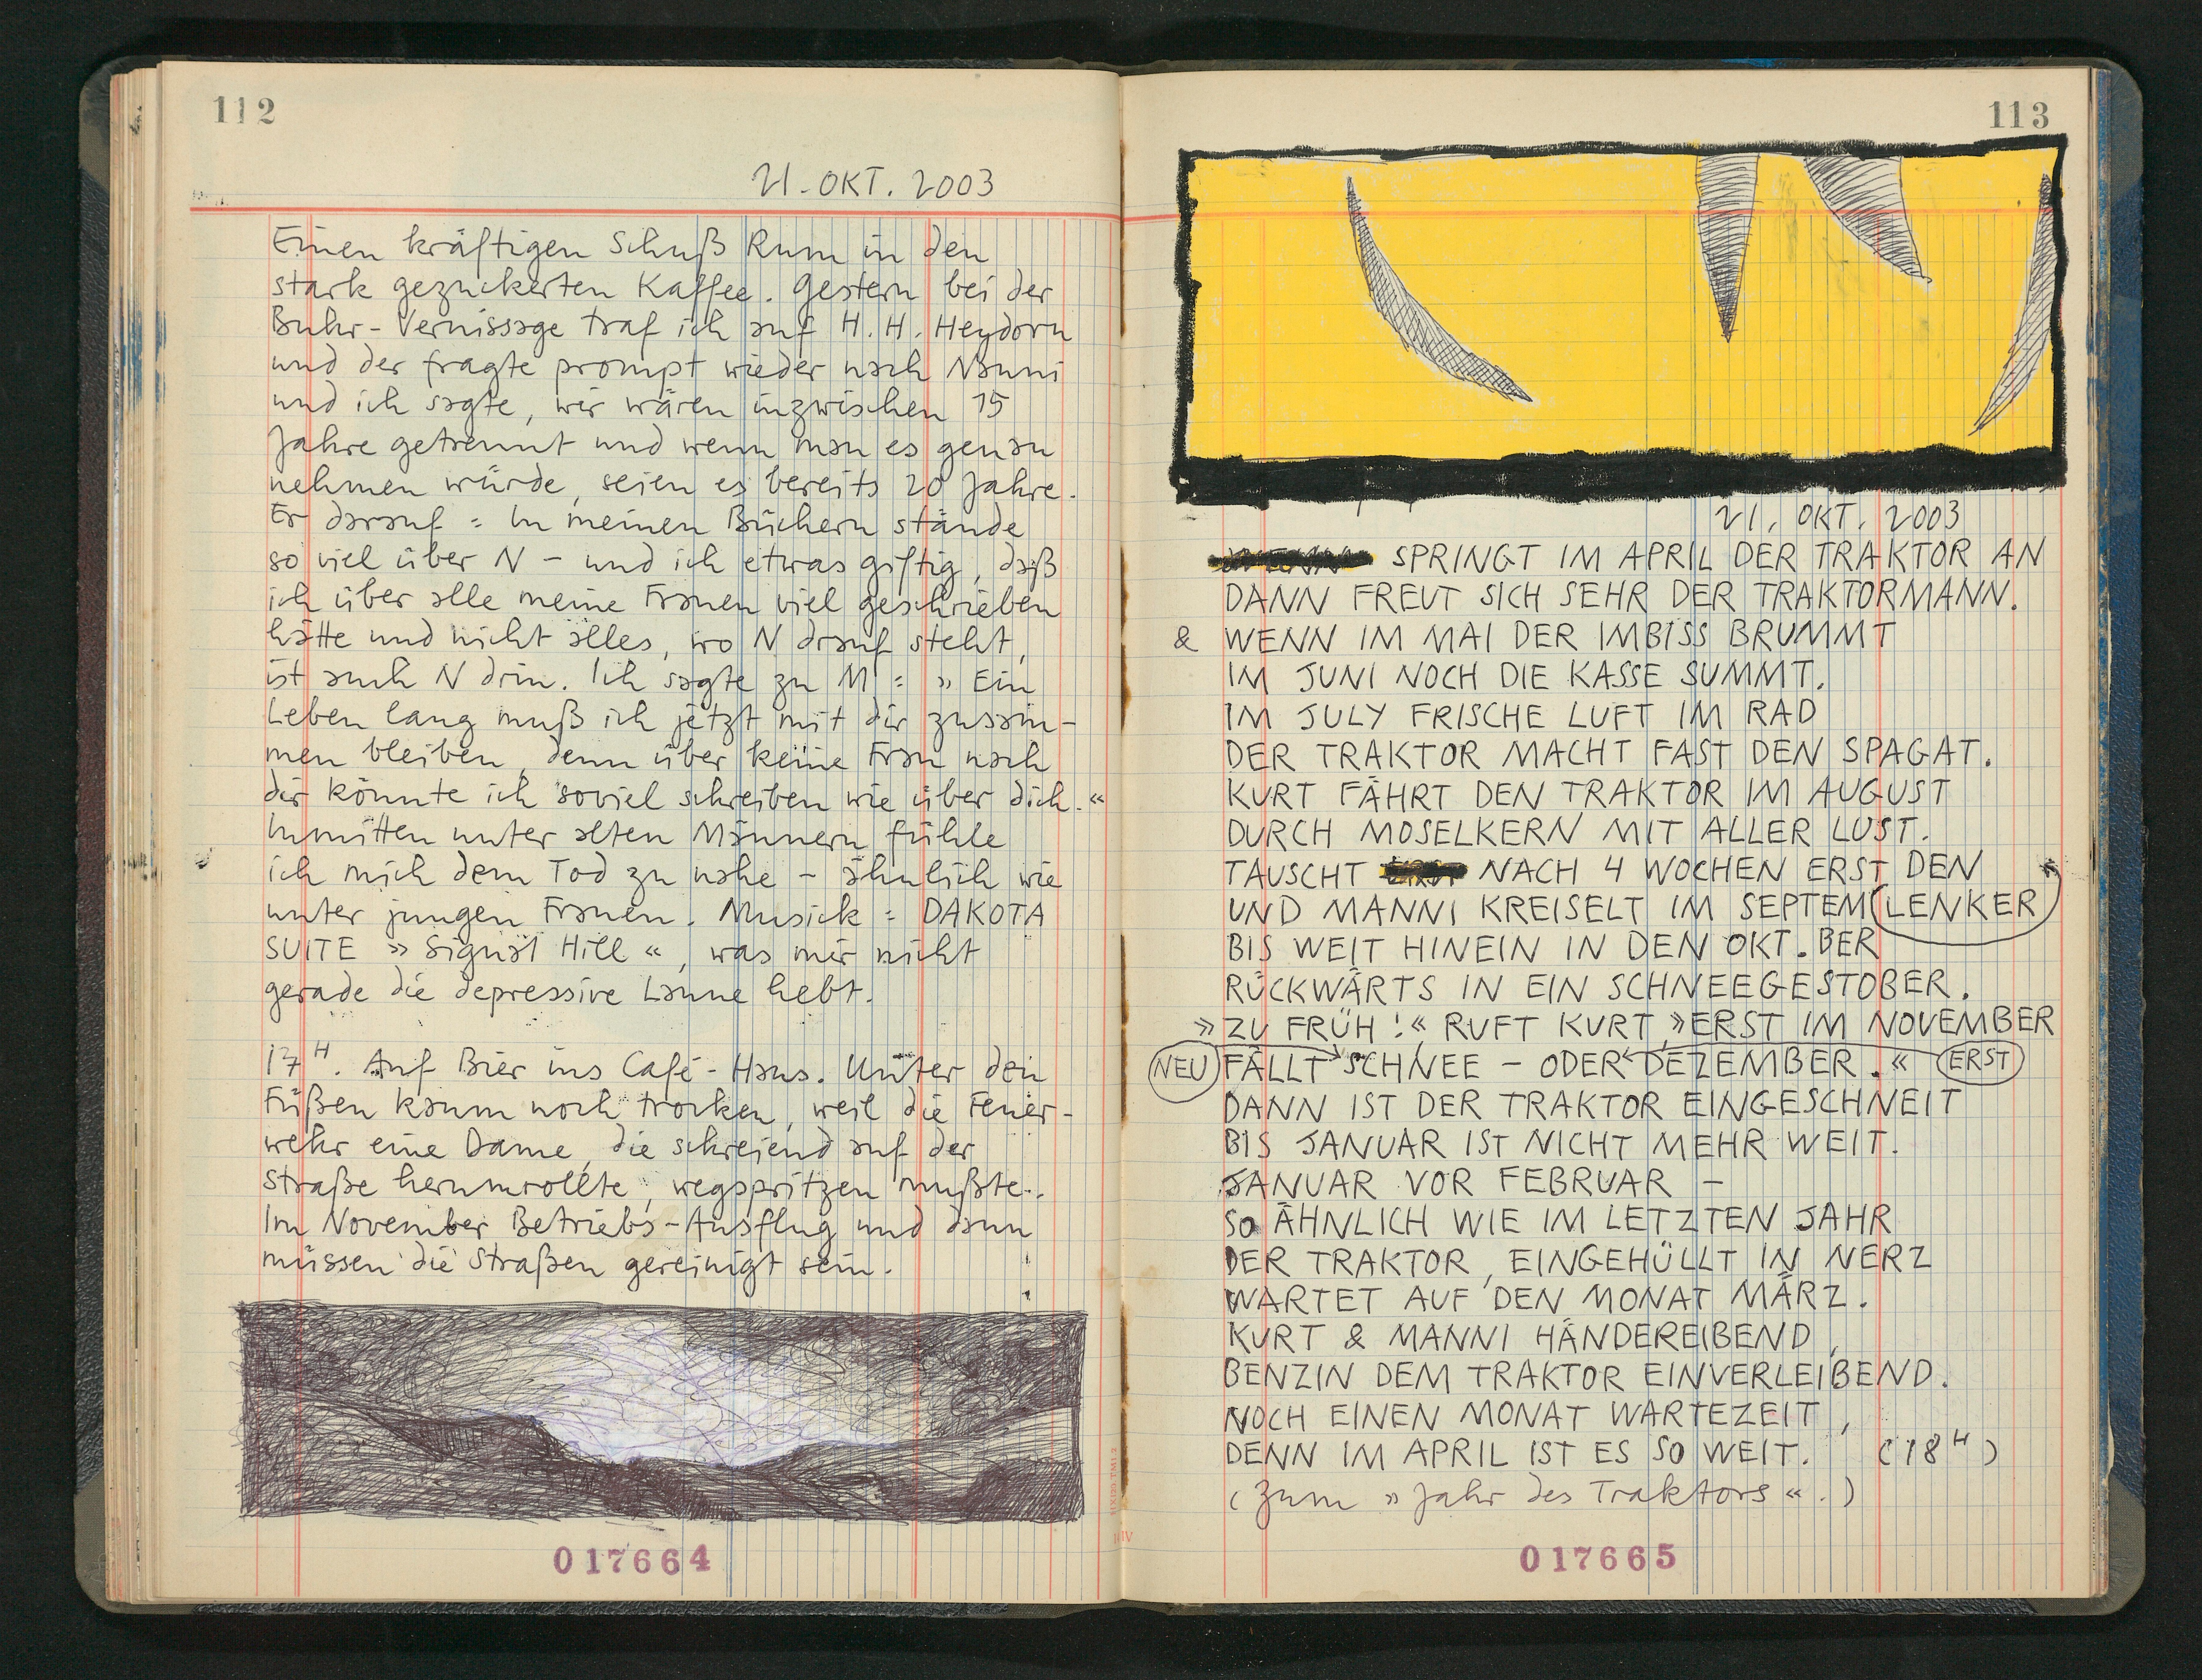 112
21. OKT. 2003
Einen kräftigen Schuß Rum in den
stark gezuckerten Kaffee. Gestern bei der
Buhr-Vernissage traf ich auf H. H. Heydorn
und der fragte prompt wieder nach Nanni
und ich sagte, wir wären inzwischen 15
Jahre getrennt und wenn man es genau
nehmen würde, seien es bereits 20 Jahre.
Er darauf: In meinen Büchern stände
so viel über N – und ich etwas giftig, daß
ich über alle meine Frauen viel geschrieben
hätte und nicht alles, wo N drauf steht,
ist auch N drin. Ich sagte zu M: »Ein
Leben lang muß ich jetzt mit dir zusam-
men bleiben, denn über keine Frau nach
dir könnte ich soviel schreiben wie über dich.«
Inmitten unter alten Männern fühle
ich mich dem Tod zu nahe – ähnlich wie
unter jungen Frauen. Musick: DAKOTA
SUITE »Signal Hill«, was mir nicht
gerade die depressive Laune hebt.
17 H. Auf Bier ins Café-Haus. Unter den
Füßen kaum noch trocken, weil die Feuer-
wehr eine Dame, die schreiend auf der
Straße herumrollte, wegspritzen mußte.
Im November Betriebs-Ausflug und dann
müssen die Straßen gereinigt sein.
017664
113
21. OKT. 2003
SPRINGT IM APRIL DER TRAKTOR AN
DANN FREUT SICH SEHR DER TRAKTORMANN.
& WENN IM MAI DER IMBISS BRUMMT
IM JUNI NOCH DIE KASSE SUMMT.
IM JULY FRISCHE LUFT IM RAD
DER TRAKTOR MACHT FAST DEN SPAGAT.
KURT FÄHRT DEN TRAKTOR IM AUGUST
DURCH MOSELKERN MIT ALLER LUST.
TAUSCHT NACH 4 WOCHEN ERST DEN
UND MANNI KREISELT IM SEPTEM (LENKER)
BIS WEIT HINEIN IN DEN OKT.BER
RÜCKWÄRTS IN EIN SCHNEEGESTOBER.
»ZU FRÜH!« RUFT KURT, »ERST IM NOVEMBER
NEU FÄLLT SCHNEE – ODER DEZEMBER.« ERST
DANN IST DER TRAKTOR EINGESCHNEIT
BIS JANUAR IST NICHT MEHR WEIT.
JANUAR VOR FEBRUAR –
SO ÄHNLICH WIE IM LETZTEN JAHR
DER TRAKTOR, EINGEHÜLLT IN NERZ
WARTET AUF DEN MONAT MÄRZ.
KURT & MANNI HÄNDEREIBEND,
BENZIN DEM TRAKTOR EINVERLEIBEND.
NOCH EINEN MONAT WARTEZEIT,
DENN IM APRIL IST ES SO WEIT. (18 H)
(Zum »Jahr des Traktors«.)
017665